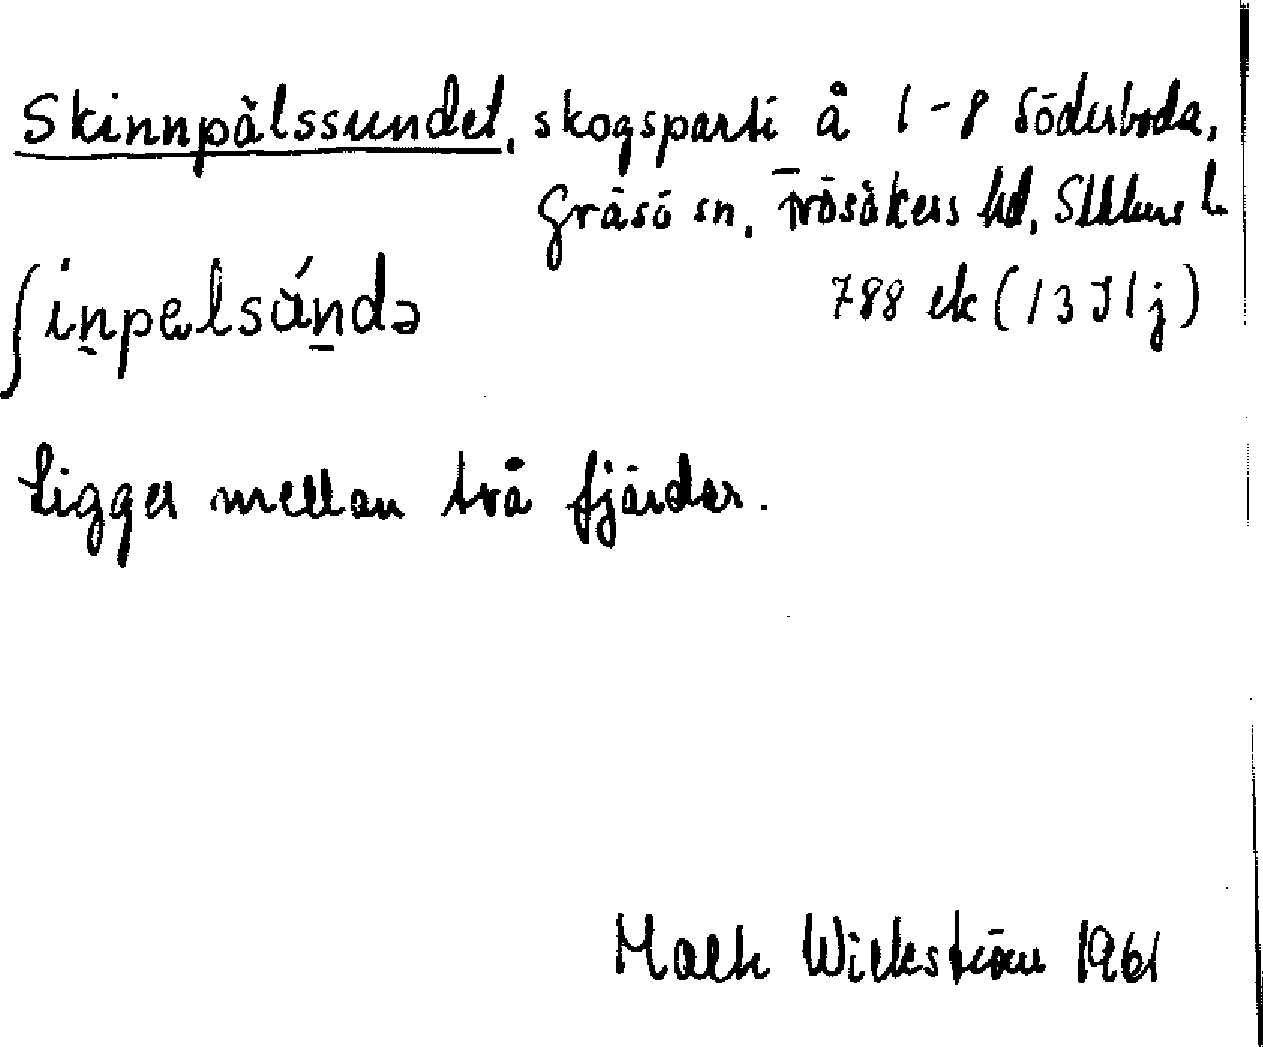 Skinnpälssundet, skogsparti å 1-8 Söderboda,
Gräsö sn, Frösåkers hd, Sthlms l.
ʃin̠pelsún̠də
788 ek (13 I 1 j)
Ligger mellan två fjärdar.
Wickström 1961